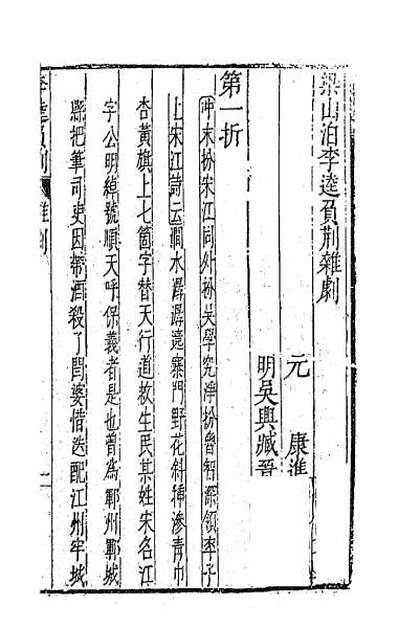 梁山泊李逵負荊雜劇
元　康進
明吳興臧晉
第一折
沖末扮宋江同外扮吳學究淨扮魯智深領卒子
上宋江詩云澗水潺潺遶寨門野花斜揷滲青巾
杏黃旗上七箇字替天行道救生民某姓宋名江
字公明綽號順天呼保義者是也曾爲鄆州鄆城
縣把筆司吏因帶酒殺了閻婆惜迭配江州牢城